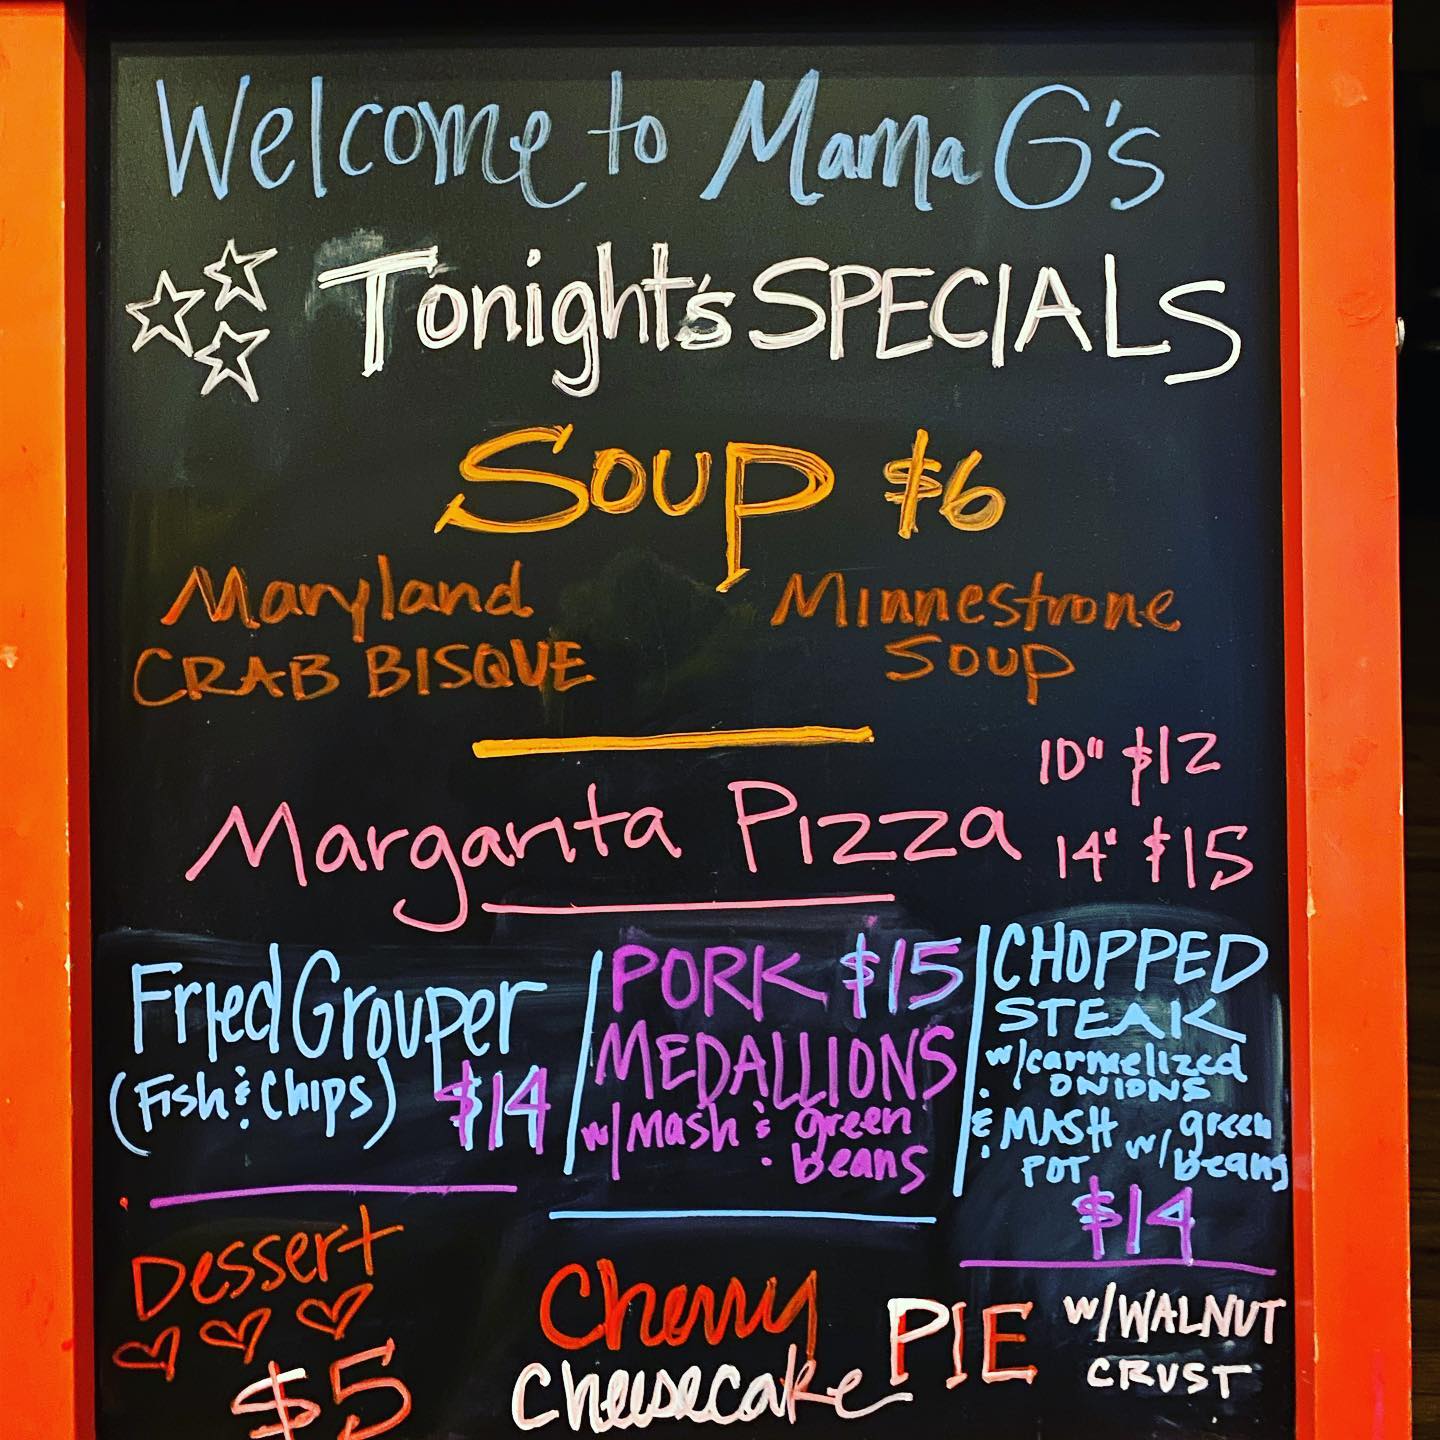 Welcome to Mama G's
Tonight's SPECIALS
SOUP $6
Maryland
CRAB BISQUE
Minnestrone
SOUP
Margarita Pizza
10" $12
14" $15
Fried Grouper
(Fish & Chips) $14
PORK $15
MEDALLIONS
w/ Mash & green
beans
CHOPPED
STEAK
w/carmelized
ONIONS
& MASH w/ green
POT beans
$14
Dessert
$5
Cherry
Cheesecake PIE
w/WALNUT
CRUST